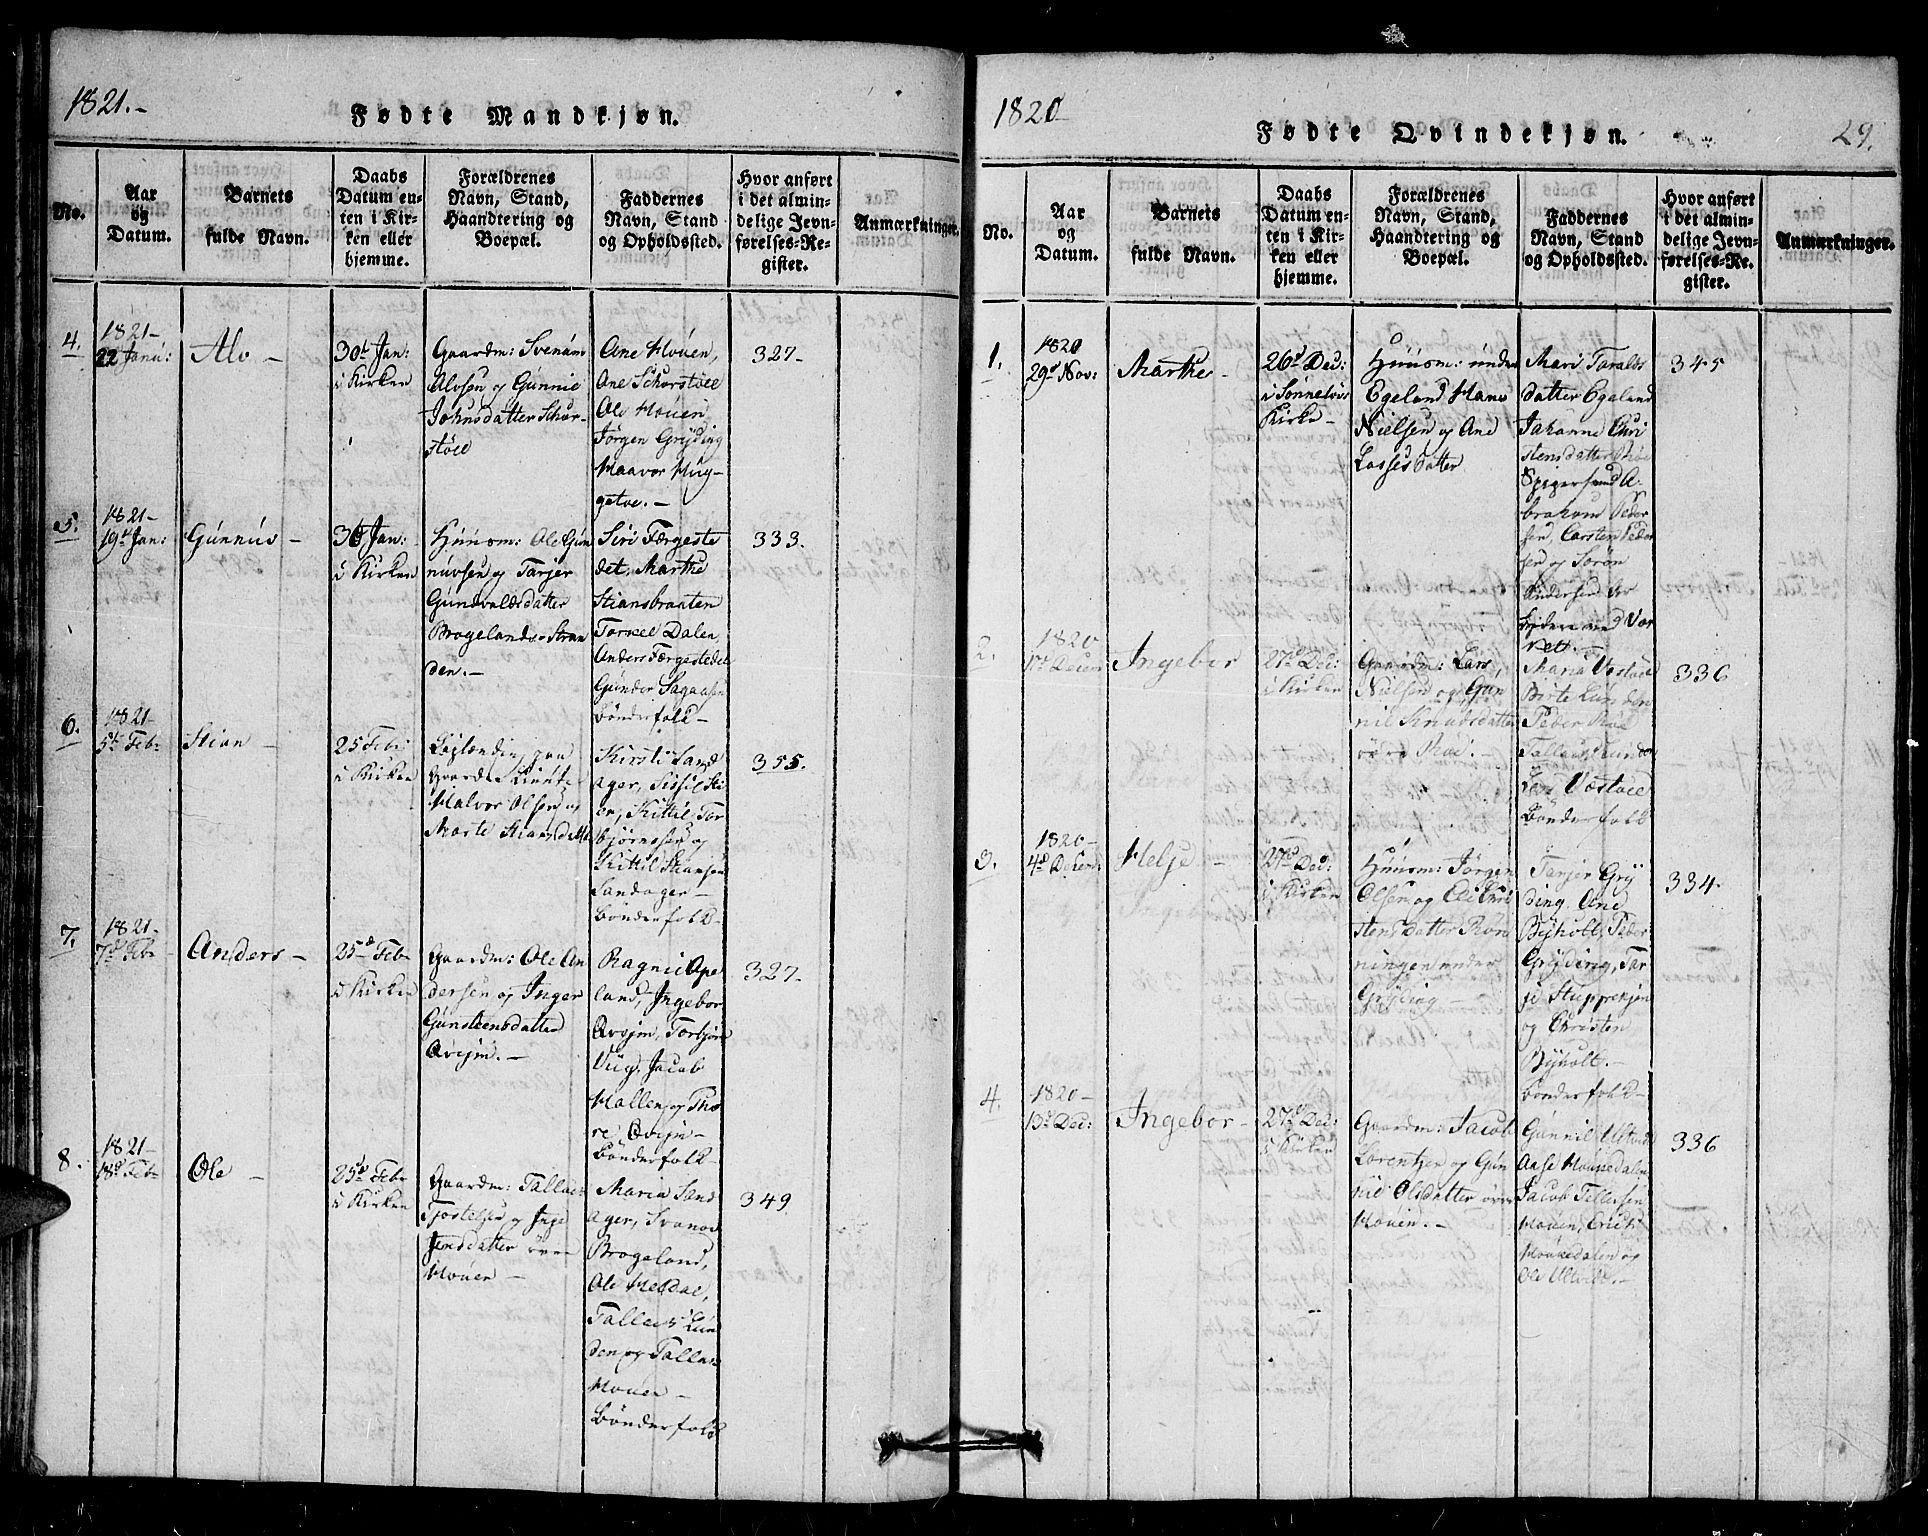 1821.-
Fødte Mandkjøn.
No.
Aar
og
Datum.
Barnets
fulde Navn.
Daabs
Datum en-
ten i Kir-
ken eller
hjemme.
Forældrenes
Navn, Stand,
Haandtering og
Boepæl.
Faddernes
Navn, Stand
og Opholdssted.
Hvor anført
i det almin-
delige Jevn-
førelses-Re-
gister.
Anmærkninger.
4.
1821-
22 Janú:
Alv -
30t Jan:
i Kirken
Gaardm:
Alvsen og Gunnie
Johnsdatter
Ane Houen,
Ane
Ole Houen
Jörgen Gryding
Haavor Hug-
327-
5.
1821-
19d Jan:
Gúnnús -
30 Jan:
i Kirken
Húúsm: Ole Gún
núvsen og Tarjer
Gúndvaldsdatter
Brogelands-Stran
den.-
Siri Færgeste
det, Marthe
Stiansbraaten
Torkel Dalen
Anders Færgestedet
Gúnder Sagaasen
Bönderfolk-
333.
6.
1821-
5te Feb:
Stian -
25 Feb:
i Kirken
Halvor Olsen og
Marte Stiansdatter
Kirsti Sand
ager, Sissil Sti
en, Kittil Tor
björnsen og
Kittil Stiansen
Sandager-
Bönderfolk-
355.
7.
1821-
7d Feb:
Anders -
25d Feb:
i Kirken
Gaardm: Ole An
dersen og Inger
Gúnsteensdatter
Qvejm.-
Ragnil Ape
land, Ingebor
Qvejm, Torbjörn
Viig, Jacob
Hallen og Tho
re Qvejm-
Bönderfolk-
327-
8.
1821-
18d Feb:
Ole -
25d Feb:
i Kirken
Gaardm: Tallac
Tjostelsen og Inge
Jensdatter övre
Houen -
Maria Sand
ager, Svanou
Brogeland,
Ole Heldal,
Tallak Lun
den og Tallac
Houen -
Bönderfolk
349
1820
Fødte Qvindekjøn.
29.
No.
Aar
og
Datum.
Barnets
fulde Navn.
Daabs
Datum en-
ten i Kir-
ken eller
hjemme.
Forældrenes
Navn, Stand,
Haandtering og
Boepæl.
Faddernes
Navn, Stand
og Opholdssted.
Hvor anført
i det almin-
delige Jevn-
førelses-Re-
gister.
Anmærkninger.
1.
1820
29d Nov:
Marthe -
26d Dec:
i Sönneløvs
Kirke -
Húúsm: únder
Egeland Hans
Nielsen og Ane
Lassesdatter
Mari Taralds
datter Egeland
Johanne Chri
stensdatter
A-
braham Peder
sen, Carsten Peder
sen og Sörön
Andersen
345
2.
1820
Ingebor
27d Dec:
i Kirken
Gaardm: Lars
Nielsen og Gún
nil Knudsdatter
övre
Maria Vestöel
Birte Lúnden
Peder
Tallak Lunden
Vestöel
Bönderfolk
336
3.
1820-
4d Decem:
Helje -
27d Dec:
i Kirken
Húúsm: Jörgen
Olsen og Oli Chri
stensdatter Rön
ningen under
Gryding -
Tarjer Gry
ding, Ane
Byholt, Peder
Gryding, Tar
je Stuppekjen
og Christen
Byholt.-
Bönderfolk-
334-
4.
1820-
13d Dec:
Ingebor -
27d Dec:
i Kirken
Gaardm: Jacob
Lorentzen og Gún
nil Olsdatter övre
Houen.-
Gúnnil Ulltveit
Aase Houkedalen
Jacob Tellefsen
Houen, Erich
Houkedalen og
Ole
336